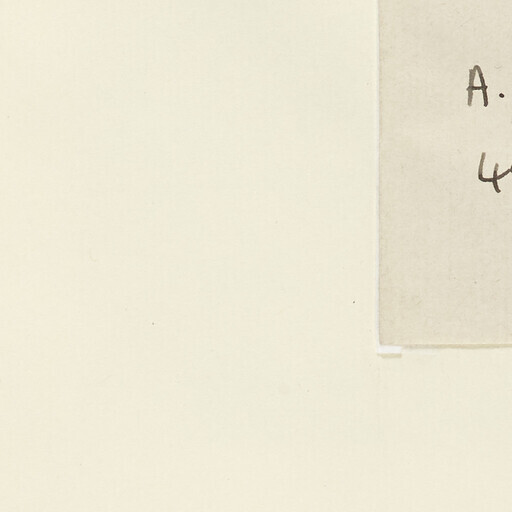 A.
4